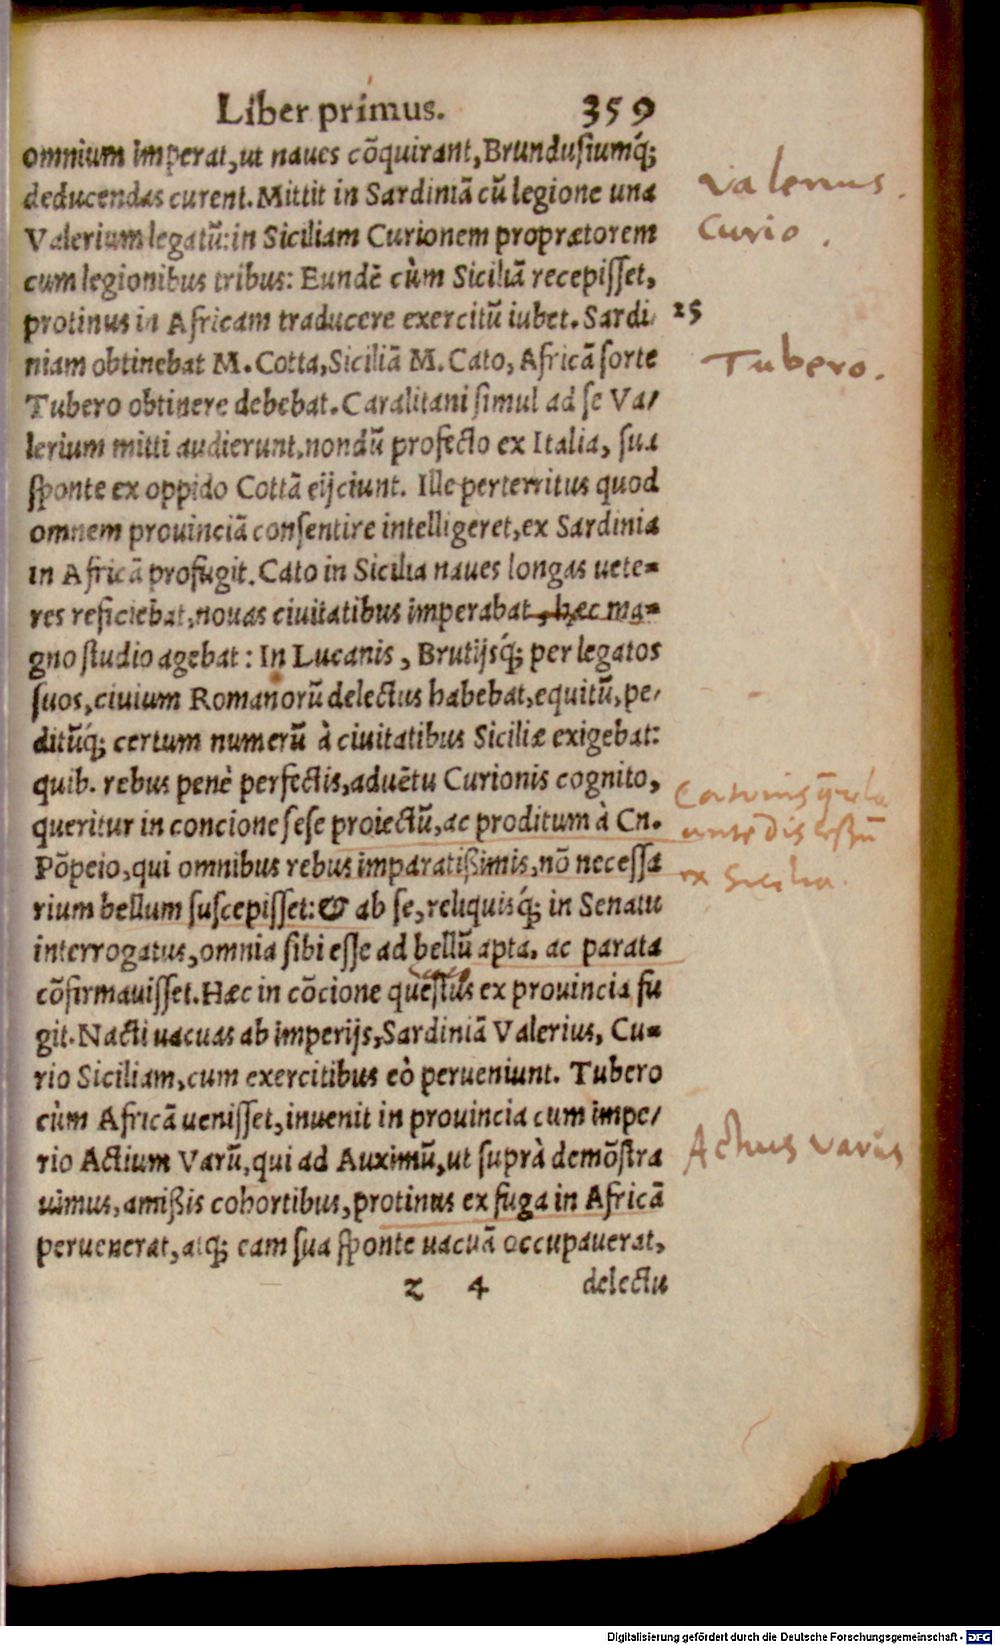 Liber primus. 359
omnium imperat, ut naues cõquirant, Brundusiumq́;
deducendas curent. Mittit in Sardiniã cũ legione una
Valerium legatũ: in Siciliam Curionem proprætorem
cum legionibus tribus: Eundẽ cùm Siciliã recepisset,
protinus in Africam traducere exercitũ iubet. Sardi/ 25
niam obtinebat M. Cotta, Siciliã M. Cato, Africã sorte
Tubero obtinere debebat. Caralitani simul ad se Va/
lerium mitti audierunt, nondũ profecto ex Italia, sua
sponte ex oppido Cottã eijciunt. Ille perterritus quod
omnem prouinciã consentire intelligeret, ex Sardinia
in Africã profugit. Cato in Sicilia naues longas uete=
res reficiebat, nouas ciuitatibus imperabat, hæc ma=
gno studio agebat: In Lucanis, Brutijsq́; per legatos
suos, ciuium Romanorũ delectus habebat, equitũ, pe/
ditũq́; certum numerũ à ciuitatibus Siciliæ exigebat:
quib. rebus penè perfectis, aduẽtu Curionis cognito,
queritur in concione sese proiectũ, ac proditum à Cn.
Põpeio, qui omnibus rebus imparatißimis, nõ necessa
rium bellum suscepisset: & ab se, reliquisq́; in Senatu
interrogatus, omnia sibi esse ad bellũ apta, ac parata
cõfirmauisset. Hæc in cõcione questus ex prouincia fu
git. Nacti uacuas ab imperijs, Sardiniã Valerius, Cu=
rio Siciliam, cum exercitibus eò perueniunt. Tubero
cùm Africã uenisset, inuenit in prouincia cum impe/
rio Actium Varũ, qui ad Auximũ, ut suprà demõstra
uimus, amißis cohortibus, protinus ex fuga in Africã
peruenerat, atq; eam sua sponte uacuã occupauerat,
z 4 delectu
Valerius.
Curio.
Tubero.
Catonis
ante discessũ
ex Sicilia.
Actius Varus
Digitalisierung gefördert durch die Deutsche Forschungsgemeinschaft - DFG